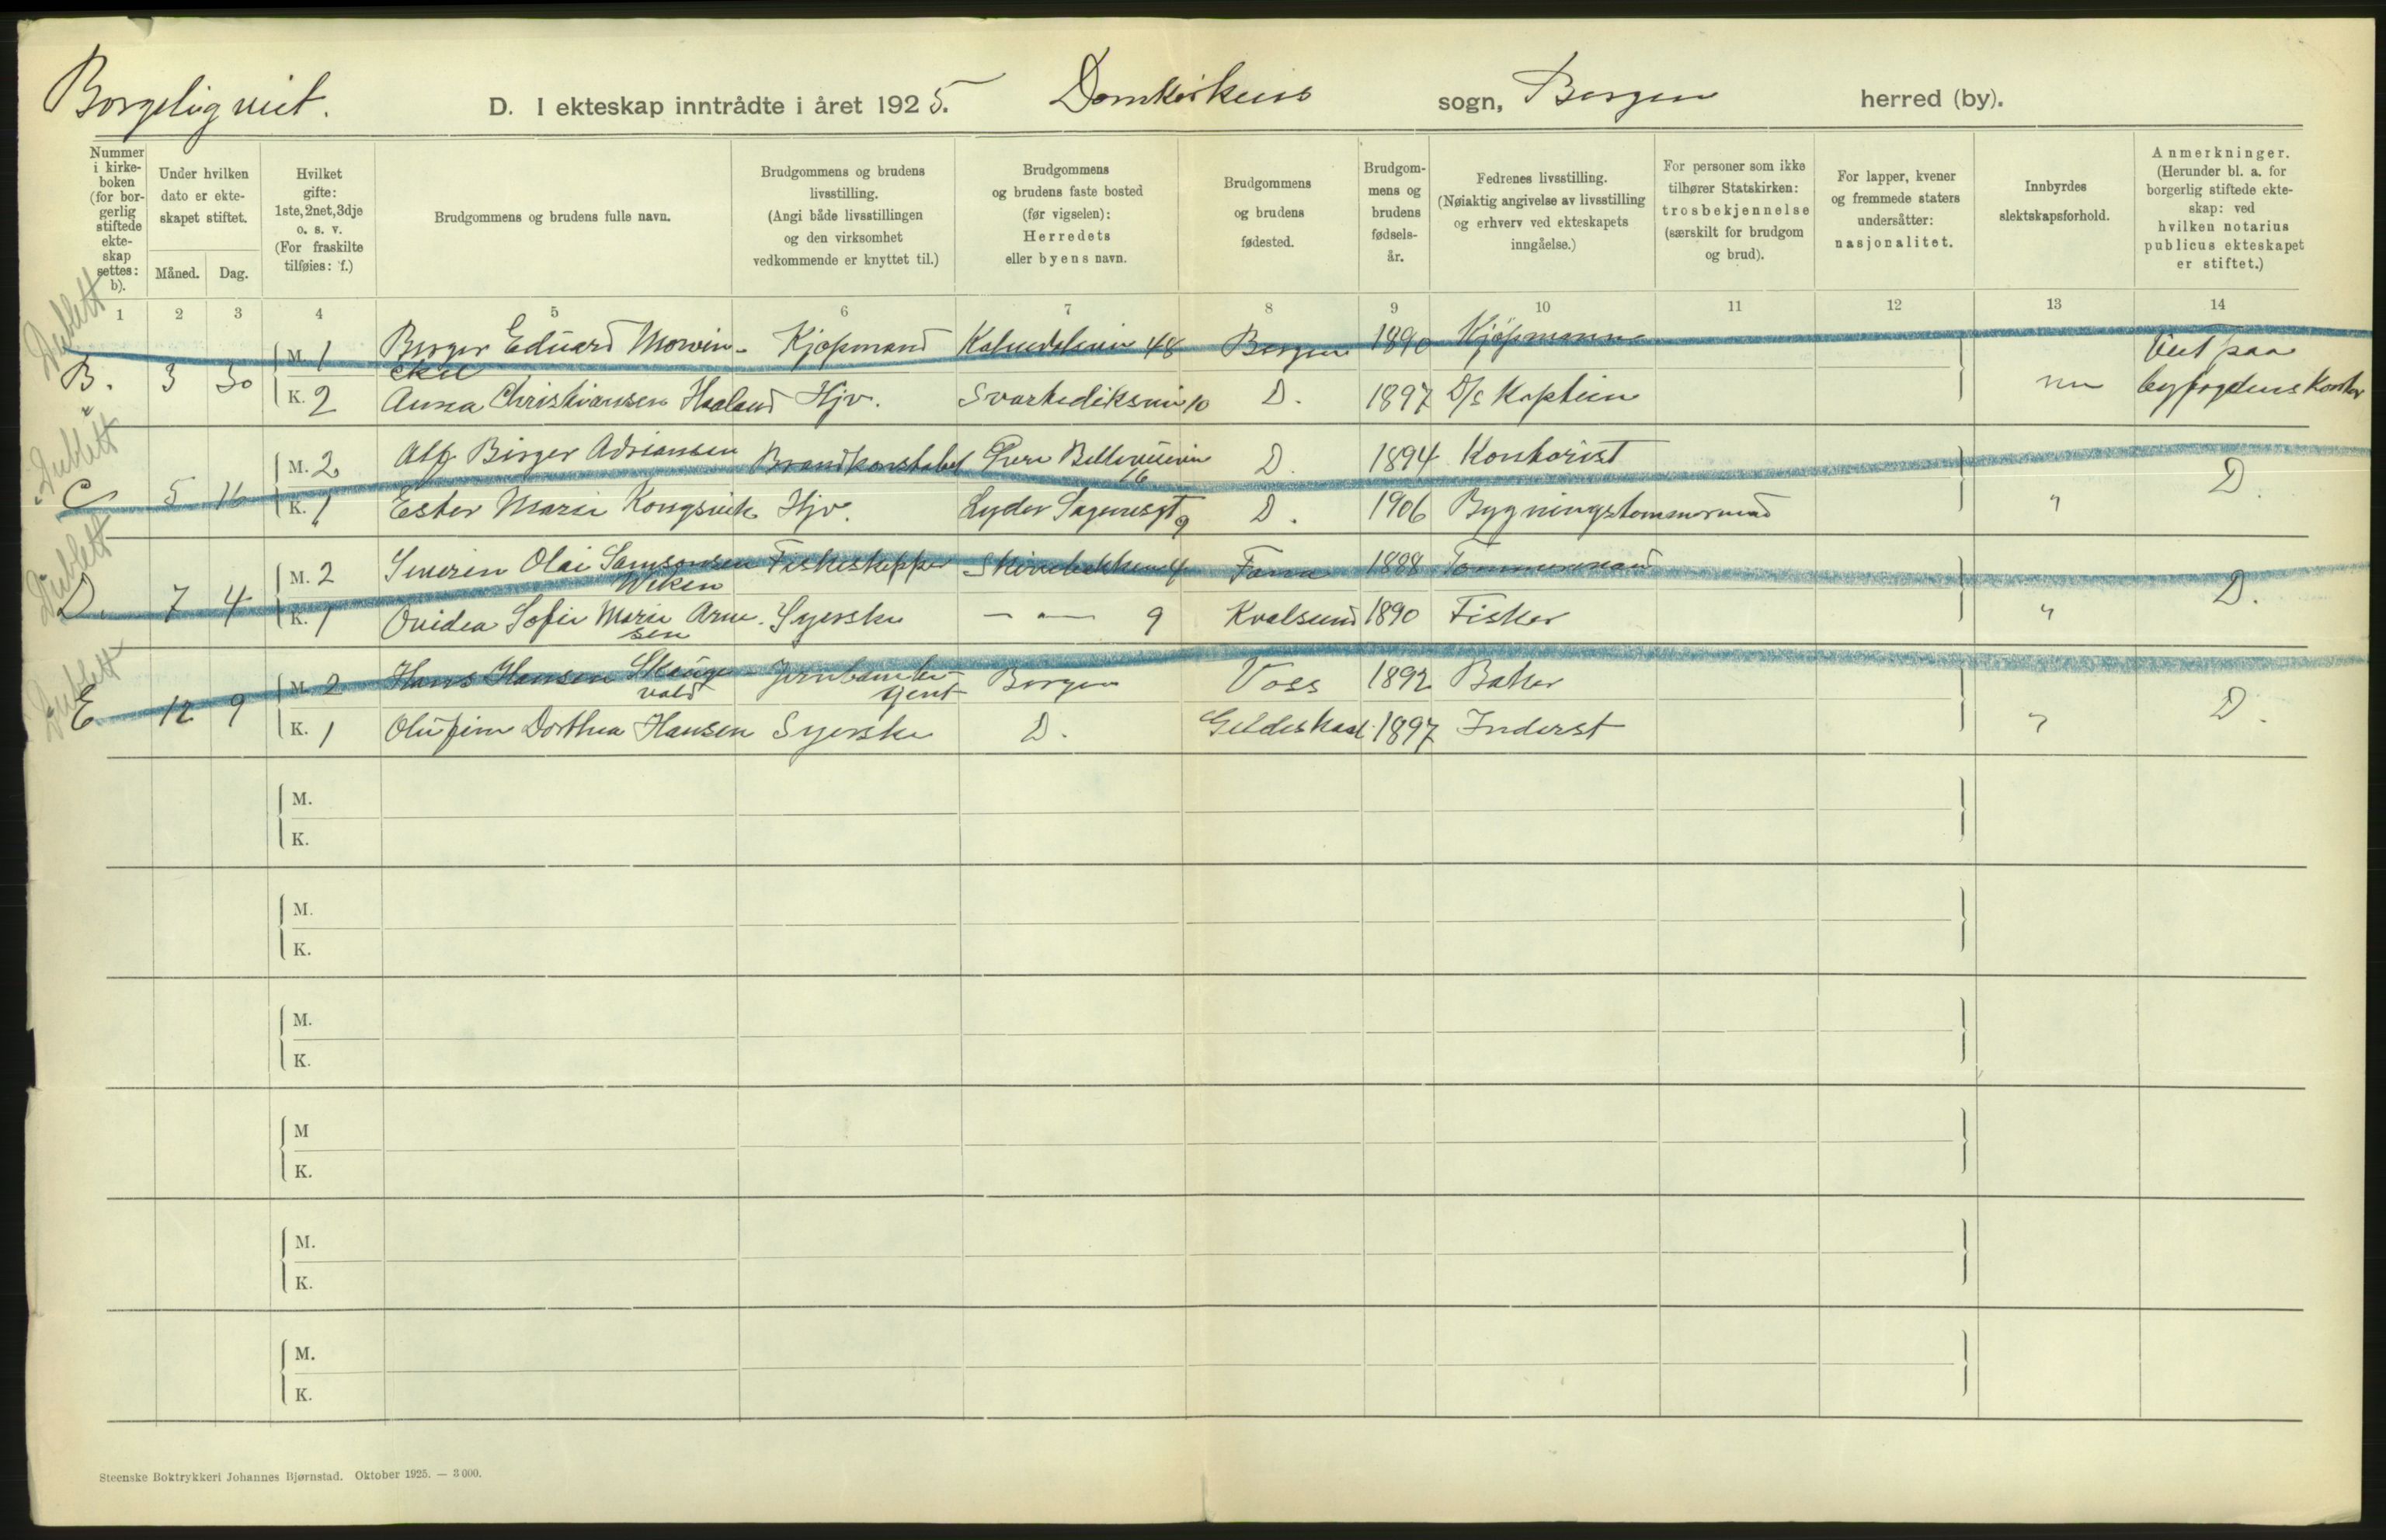 Borgelig viet.
D. I ekteskap inntrådte i året 1925. Domkirkens sogn, Bergen herred (by).
Nummer i kirkeboken (for borgerlig stiftede ekteskap settes: b).
Under hvilken dato er ekteskapet stiftet.
Måned. Dag.
Hvilket gifte: 1ste, 2net, 3dje o. s. v. (For fraskilte tilføies: f.)
Brudgommens og brudens fulle navn.
Brudgommens og brudens livsstilling. (Angi både livsstillingen og den virksomhet vedkommende er knyttet til.)
Brudgommens og brudens faste bosted (før vigselen): Herredets eller byens navn.
Brudgommens og brudens fødested.
Brudgommens og brudens fødselsår.
Fedrenes livsstilling. (Nøiaktig angivelse av livsstilling og erhverv ved ekteskapets inngåelse.)
For personer som ikke tilhører Statskirken: trosbekjennelse (særskilt for brudgom og brud).
For lapper, kvener og fremmede staters undersåtter: nasjonalitet.
Innbyrdes slektskapsforhold.
Anmerkninger. (Herunder bl. a. for borgerlig stiftede ekteskap: ved hvilken notarius publicus ekteskapet er stiftet.)
1 2 3 4 5 6 7 8 9 10 11 12 13 14
Dublett
B. 3 30 M. 1 Birger Eduard Mowinckel Kjøpmand 48 Bergen 1890 Kjøpmann Viet paa
K. 2 Anna Christiansen Haaland Hjv. Svartediksvei 10 D. 1897 D/s Kaptein byfogdens Kontor
Dublett
C 5 16 M. 2 Alf Birger Adriansen Brandkonstabel 16 D. 1894 Kontorist D.
K. 1 Ester Marie Kongsvik Hjv. Lyder Sagensgt 9 D. 1906 Bygningstømmermand "
Dublett
D. 7 4 M. 2 Severin Olai Samsonsen Wiken Fiskeskipper Skivebakken 4 Fana 1888 Tømmermand D.
K. 1 Ovidea Sofie Marie Arnesen Syerske — " — 9 Kvalsund 1890 Fisker "
Dublett
E 12 9 M. 2 Hans Hansen Skaugevald Bergen Voss 1892 Baker D.
K. 1 Olufine Dorthea Hansen Syerske D. Gildeskaal 1897 Inderst "
M.
K.
M.
K.
M.
K.
M
K.
M.
K.
M.
K.
Steenske Boktrykkeri Johannes Bjørnstad. Oktober 1925. — 3000.